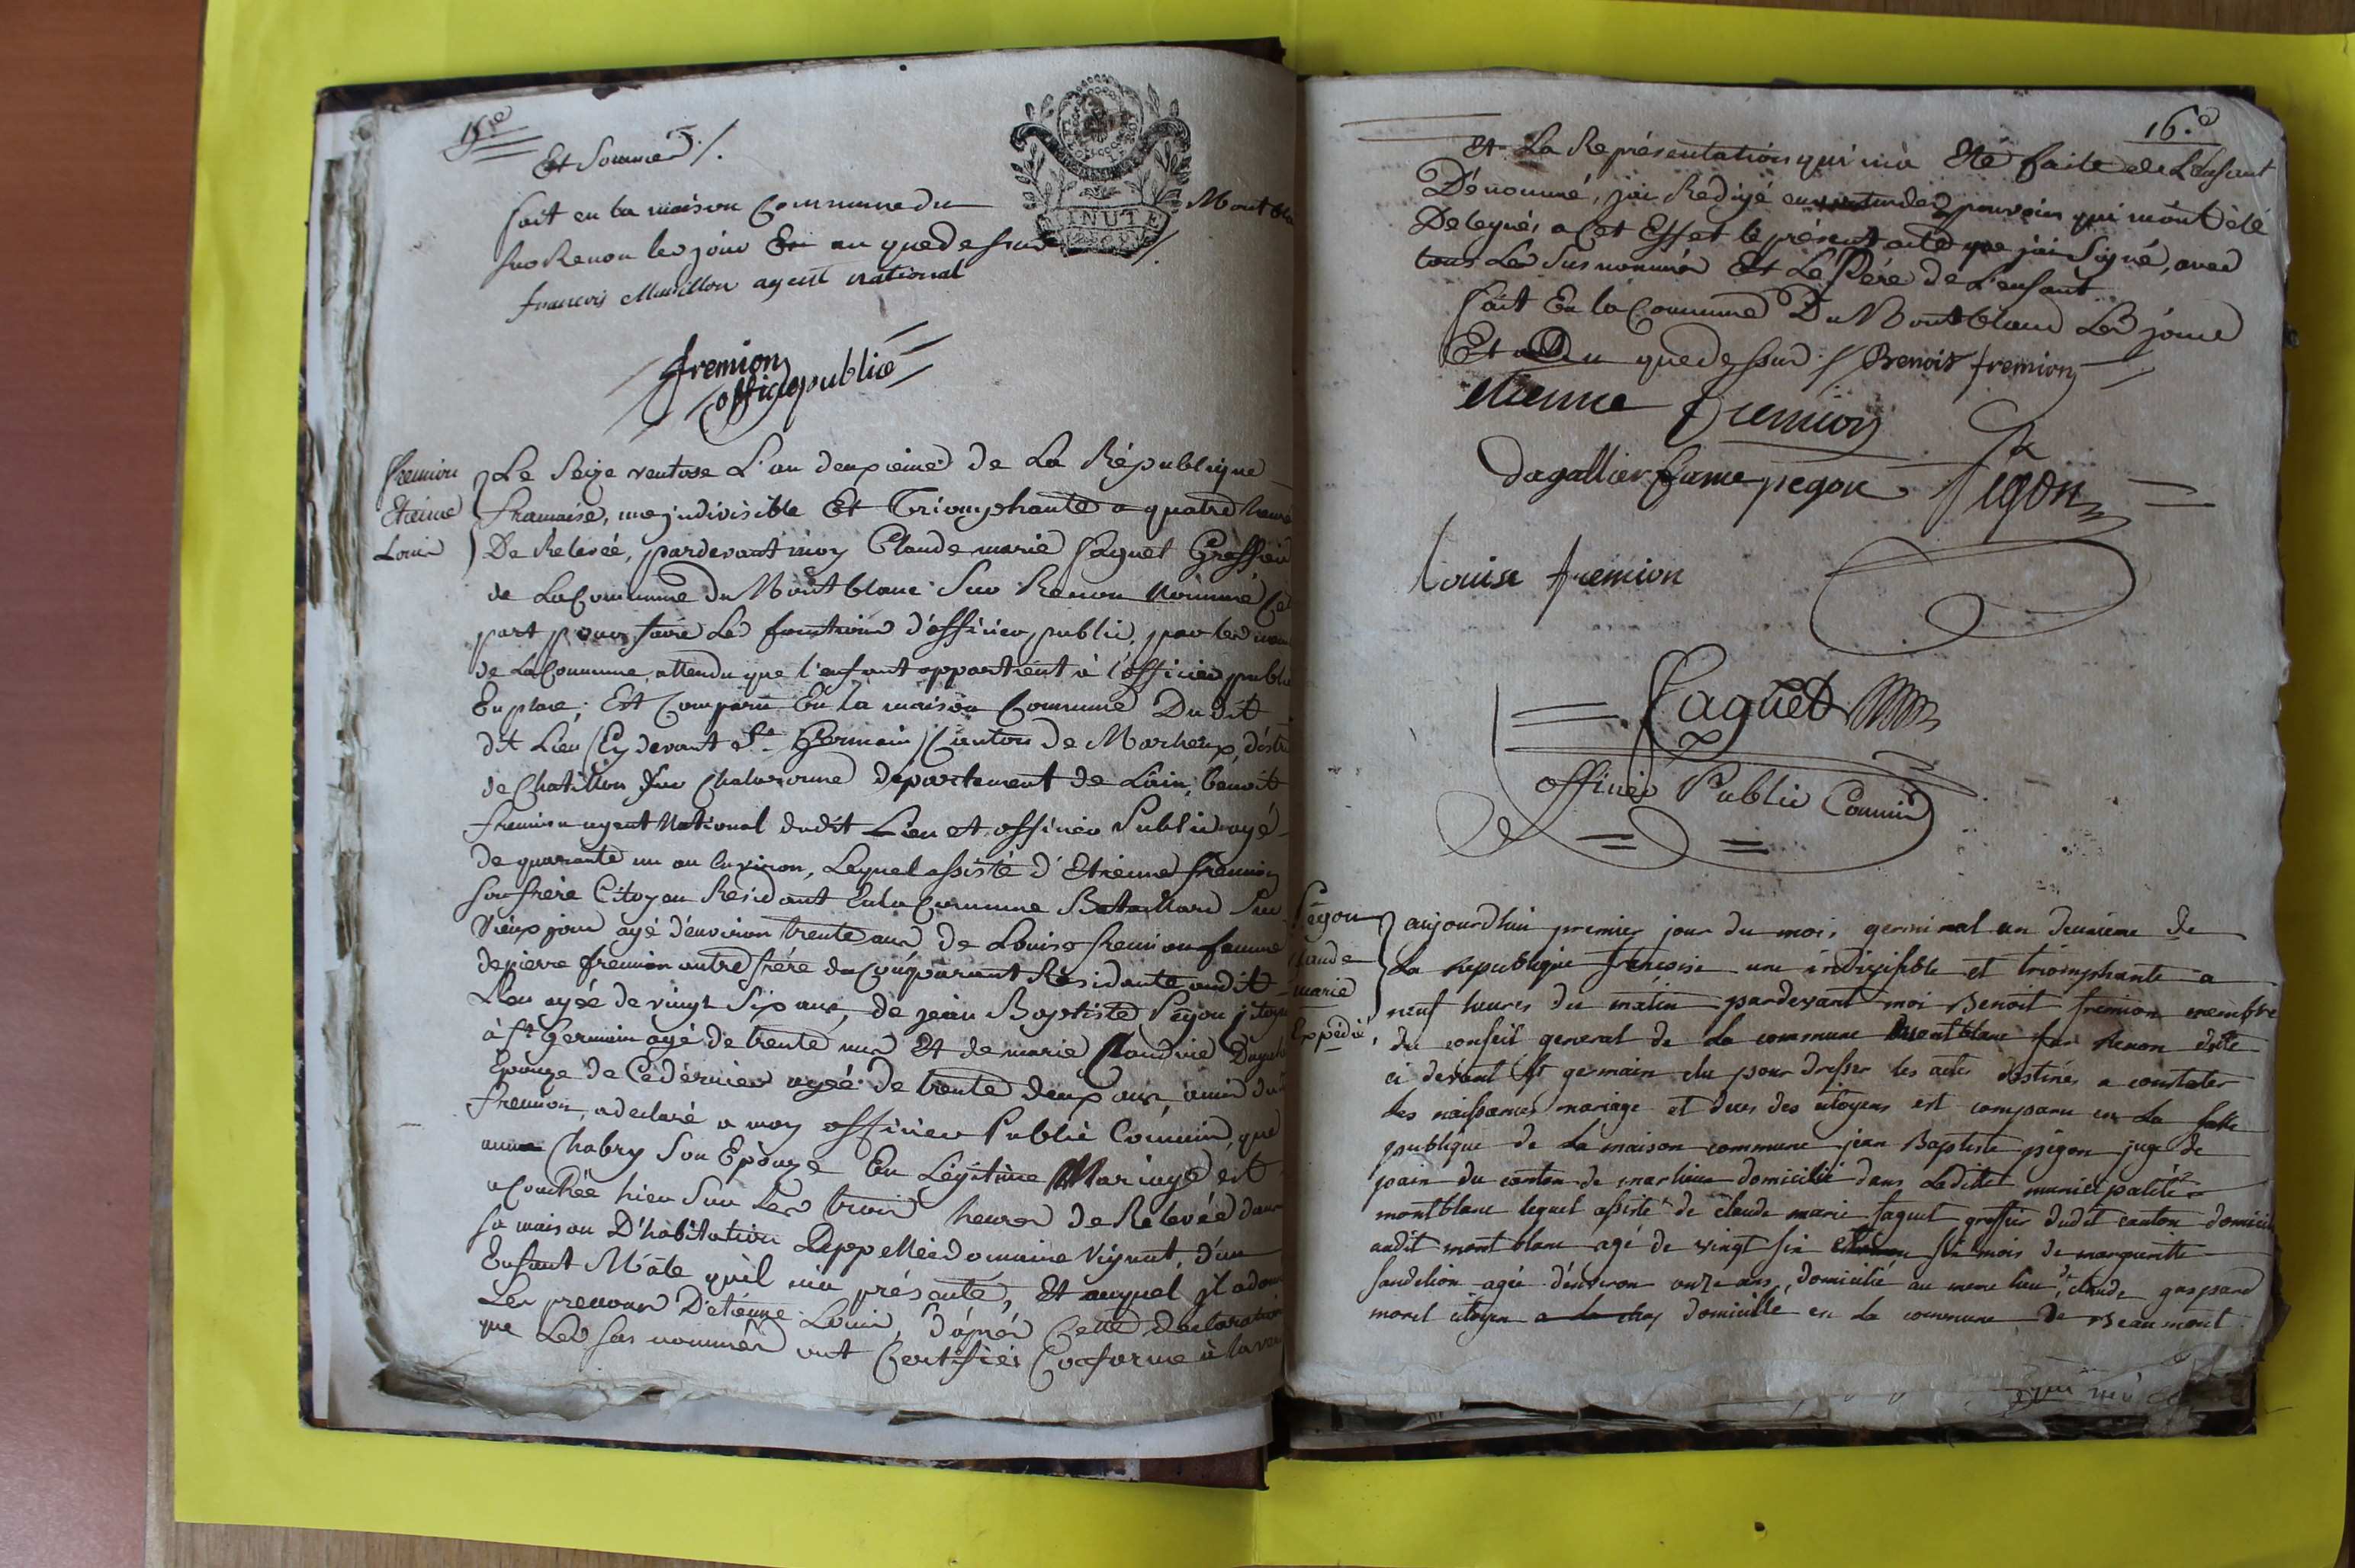 15e
Et Sommes ./.
fait en la maison Commune du Mont bla
sur Renon les jour Et an que dessus ./.
MINUTE
francois Marillon agent national
fremion
offici publie
fremion
Etiene
Louis
Le Seize ventose L'an deuxieme de La République
francaise, une jndivisible Et Triomphante a quatre heure
De Relevée, pardevant moy Claude marie faguet Greffier
de La Commune du Mont blanc Sur Renon Nommé
part pour faire Les fonctions d'officier public, par les
de La Commune, attendu que l'enfant appartient à l'officier public
En place; Est Comparu En la maison Commune Du dit
dit Lieu (Cy devant St Germain) Canton de Marlieux, dist
de Chatillon sur Chalaronne département de Lain, benoit
fremion agent National dudit Lieu et officier Public agé
de quarante un an Environ, Lequel assisté d'Etienne fremion
son frère Citoyen Residant En la Commune Bataillard Sur
Vieux jonc agé d'environ trente ans, de Louise fremion femme
de pierre fremion autre frère du Comparant Residante audit
Lieu agée de vingt Six ans, de jean Baptiste Pegon citoyen
à St Germain agé de trente ans Et de marie Claudine Dagal
Epouze de Ce dernier agée de trente deux ans, amis du
fremion, a declaré a moy officier Public Commis, que
anne Chabry Son Epouze En Légitime Mariage est
acouchée hier Sur Les trois heures de Relevée dans
sa maison D'habitation Appellée domaine Vignat, d'un
Enfant Mâle qu'il m'a présenté, Et auquel jl a don
Les prenoms D'etienne Louis, D'aprés Cette déclaration
que Les sus nommés ont Certifiés Conforme à la ver
16.e
et La Représentation qui m'a Eté faite de L'enfant
Dénommé, j'ai Redigé en vertu des pouvoirs qui m'ont été
Delegués a Cet Effet le présent acte que j'ai Signé, avec
tous Les Sus nommés Et Le Père de L'enfant
fait En la Commune Du Mont blanc Les jour
Et an que dessus ./. Benoit fremion
etienne fremion
dagallier fame pegon Pegon
louise fremion
faguet
officier Public Commis
Pegon
Claude
marie
Expédié,
aujourdhui premier jour du mois germinal an deuxieme de
La republique françoise une indivisible et triomphante a
neuf heures du matin pardevant moi Benoit fremion membre
du conseil general de la commune Mont blanc sur Renon dite
ci devant St germain elu pour dresser les actes destinés a constater
les naissances mariage et deces des citoyens est comparu en La salle
publique de La maison commune jean Baptiste pegon juge de
paix du canton de marlieux domicilié dans Ladite municipalité
montblanc lequel assisté de claude marie faguet greffier dudit canton domicili
audit mont blanc agé de vingt six six mois de marguerite
sandelion agée d'environ onze ans, domicilié au meme lieu, de claude gaspard
morel citoyen domicille en La commune De Beaumont